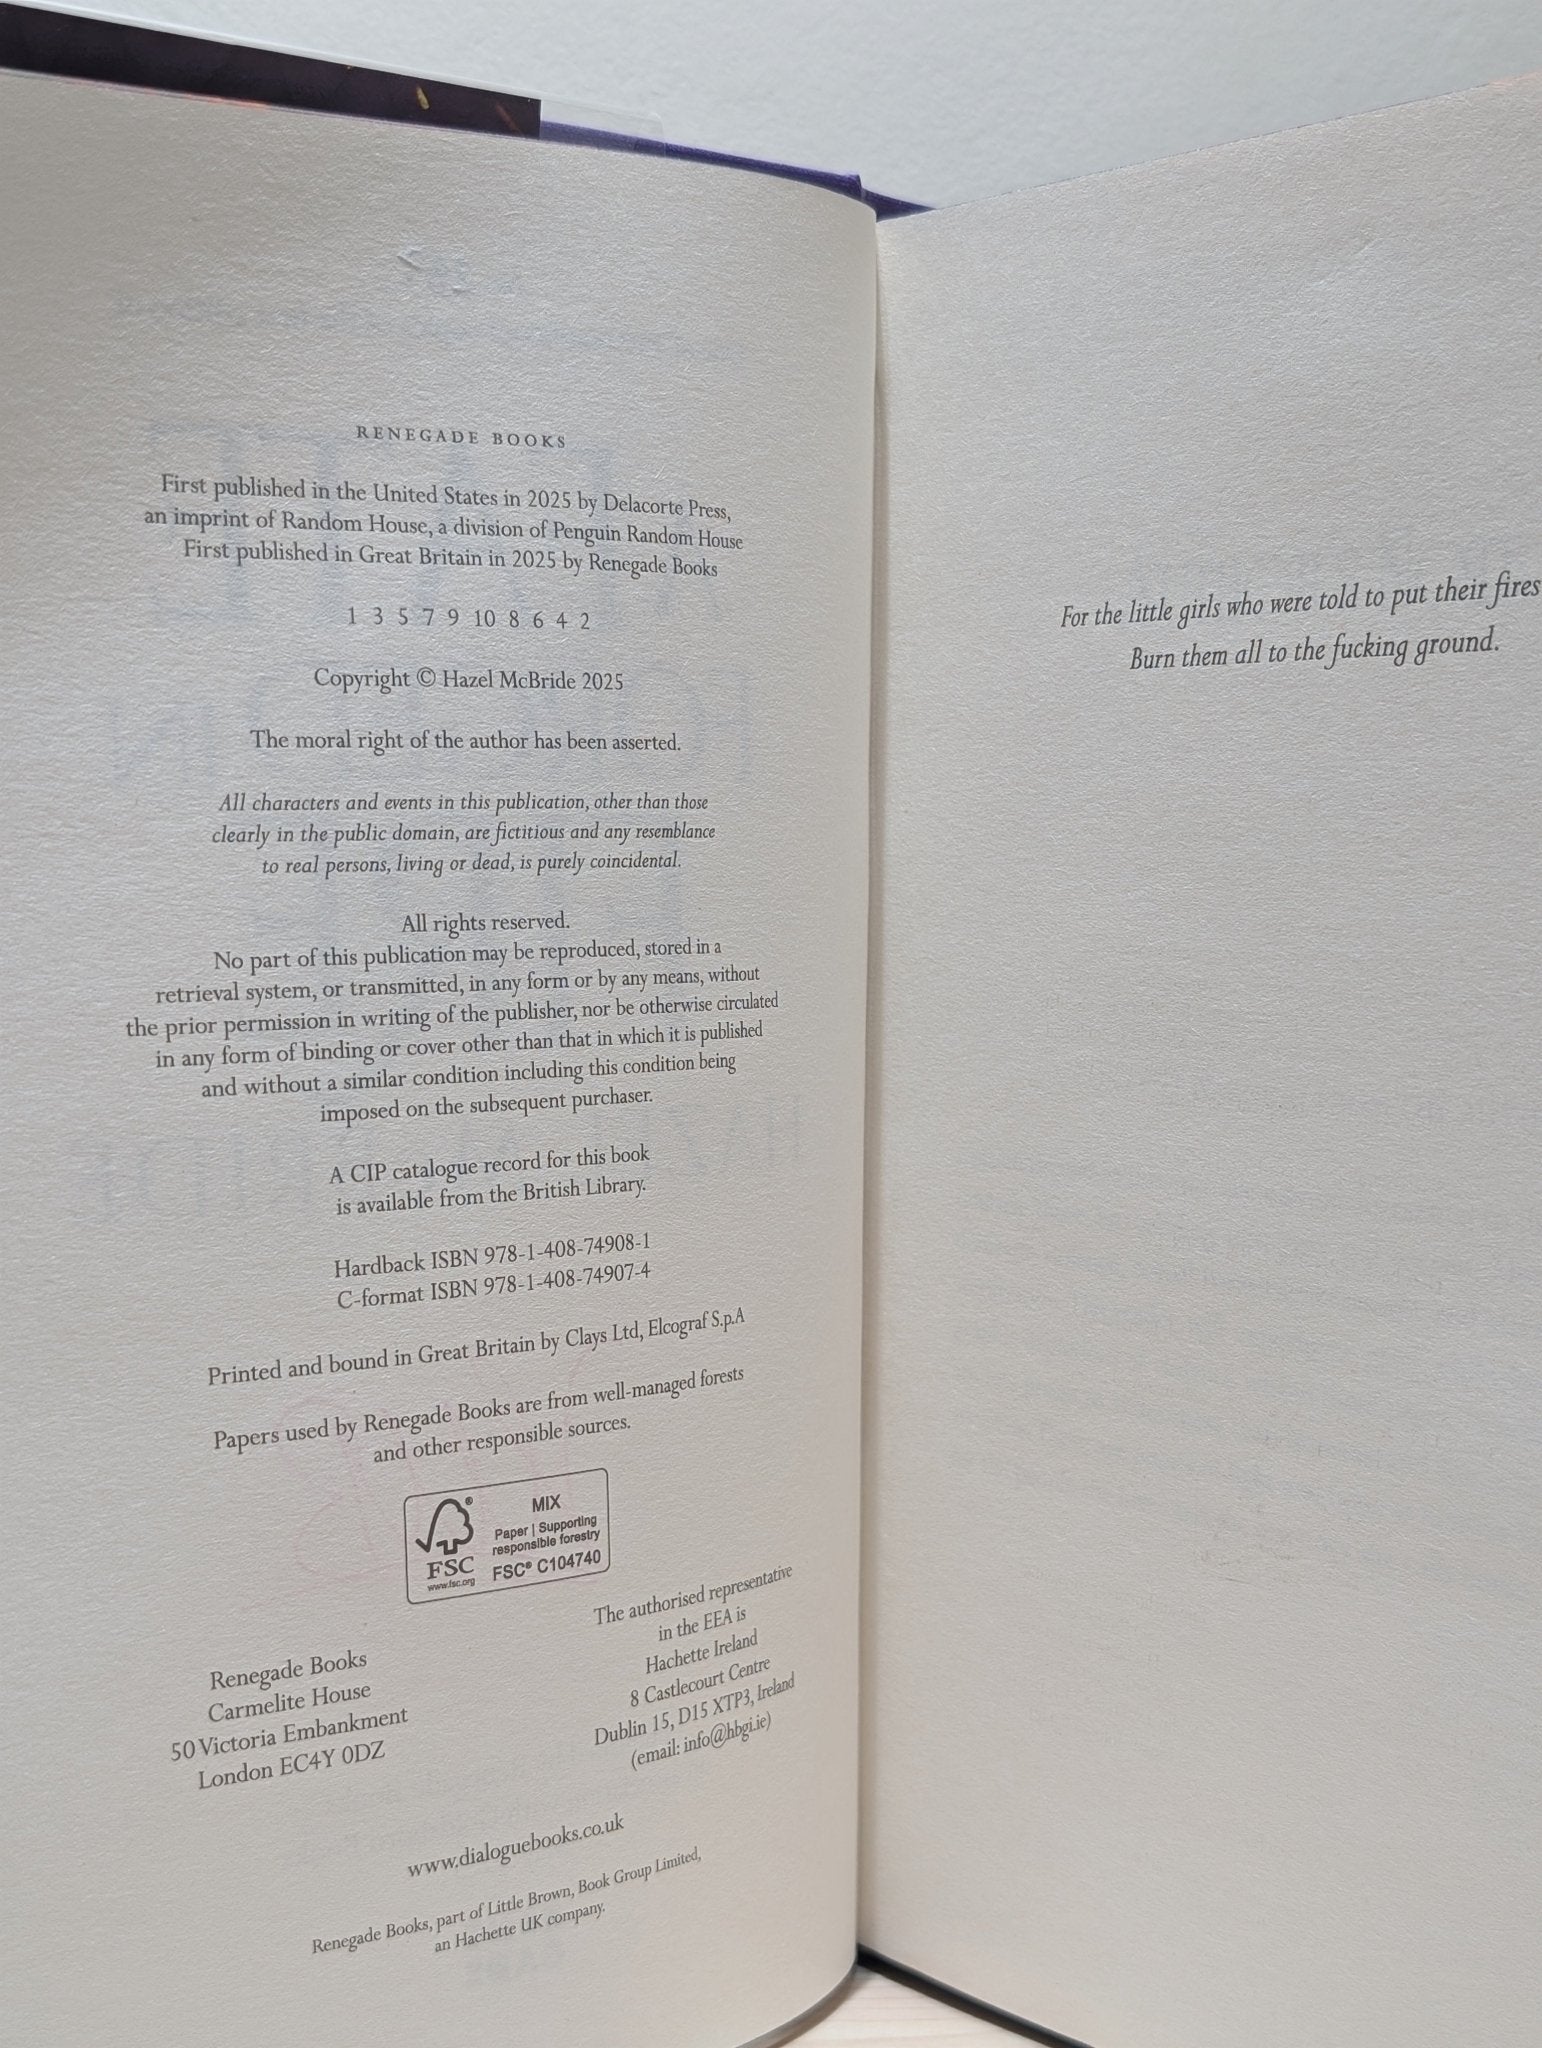 RENEGADE BOOKS
First published in the United States in 2025 by Delacorte Press,
an imprint of Random House, a division of Penguin Random House
First published in Great Britain in 2025 by Renegade Books
1 3 5 7 9 10 8 6 4 2
Copyright © Hazel McBride 2025
The moral right of the author has been asserted.
All characters and events in this publication, other than those
clearly in the public domain, are fictitious and any resemblance
to real persons, living or dead, is purely coincidental.
All rights reserved.
No part of this publication may be reproduced, stored in a
retrieval system, or transmitted, in any form or by any means, without
the prior permission in writing of the publisher, nor be otherwise circulated
in any form of binding or cover other than that in which it is published
and without a similar condition including this condition being
imposed on the subsequent purchaser.
A CIP catalogue record for this book
is available from the British Library.
Hardback ISBN 978-1-408-74908-1
C-format ISBN 978-1-408-74907-4
Printed and bound in Great Britain by Clays Ltd, Elcograf S.p.A
Papers used by Renegade Books are from well-managed forests
and other responsible sources.
FSC
www.fsc.org
MIX
Paper | Supporting
responsible forestry
FSC® C104740
Renegade Books
Carmelite House
50 Victoria Embankment
London EC4Y 0DZ
The authorised representative
in the EEA is
Hachette Ireland
8 Castlecourt Centre
Dublin 15, D15 XTP3, Ireland
(email: info@hbgi.ie)
www.dialoguebooks.co.uk
Renegade Books, part of Little Brown, Book Group Limited,
an Hachette UK company.
For the little girls who were told to put their fires
Burn them all to the fucking ground.